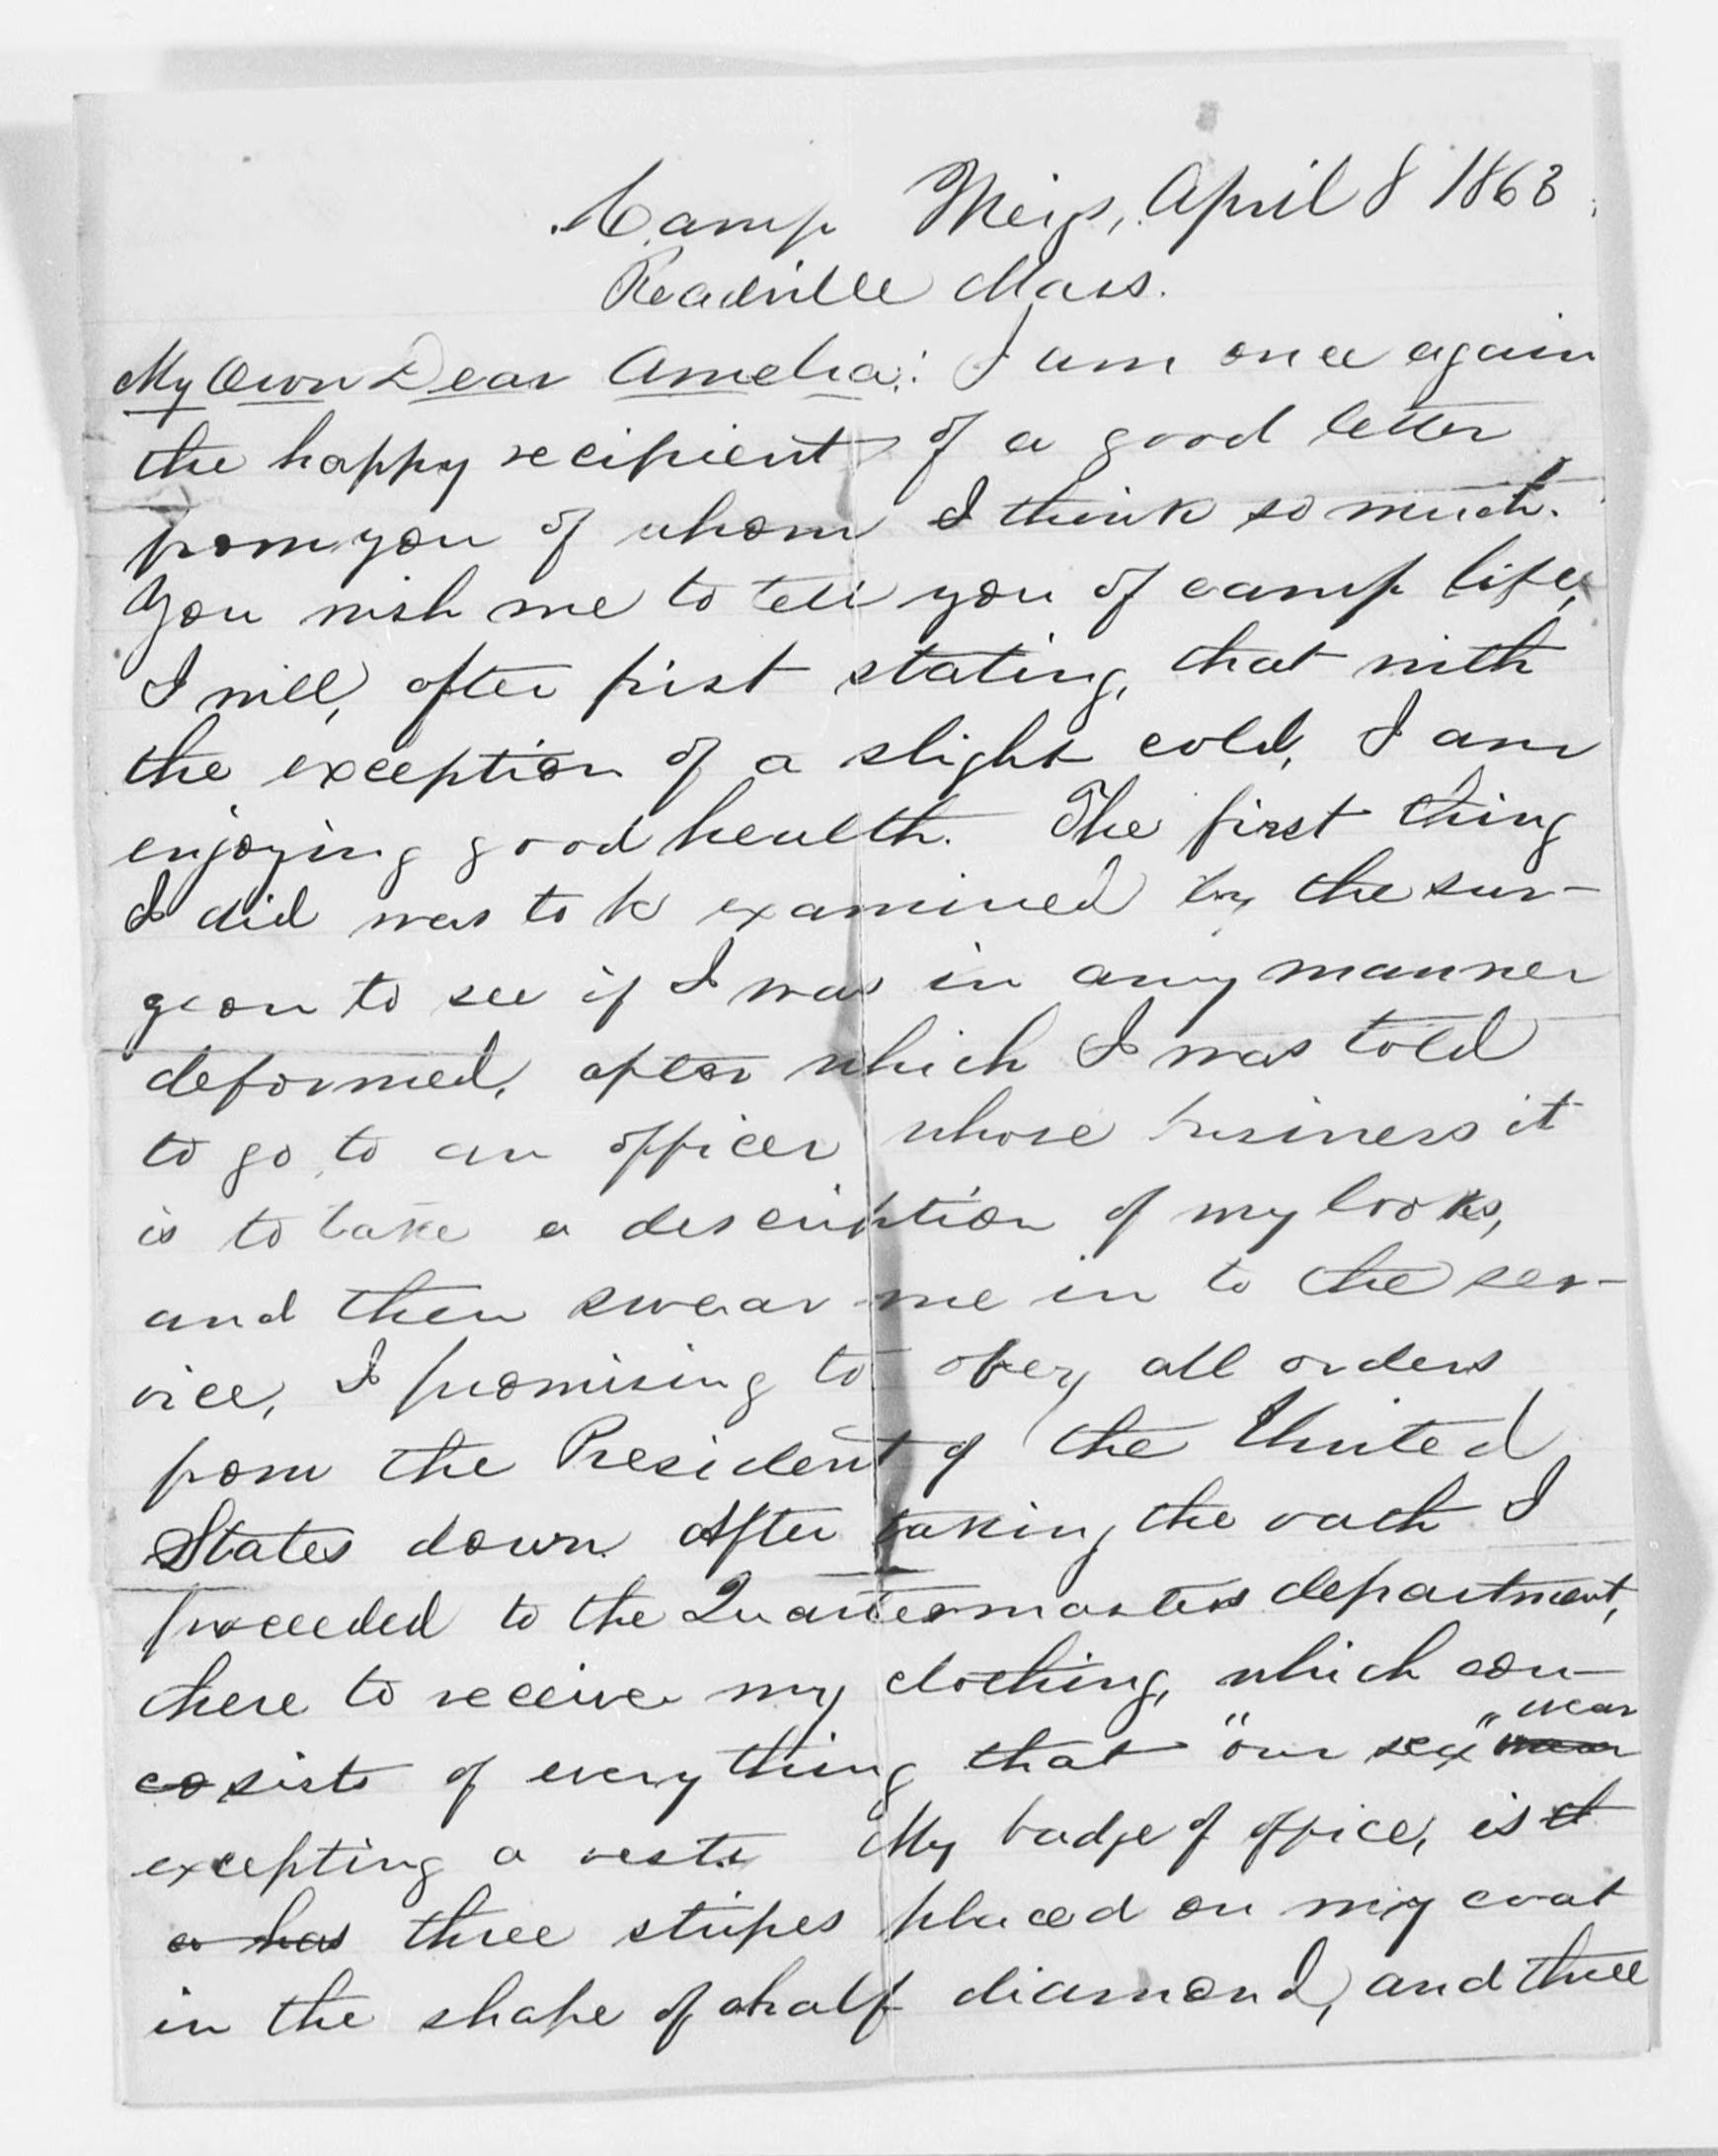 Camp Meigs, April 8 1863
Readville Mass.
My Own Dear Amelia: I am once again
the happy recipient of a good letter
from you of whom I think so much.
You wish me to tell you of camp life,
I will, after first stating, that with
the exception of a slight cold, I am
enjoying good health. The first thing
I did was to be examined by the sur-
geon to see if I was in any manner
deformed, after which I was told
to go to an officer whose business it
is to take a description of my looks,
and then swear me in to the ser-
vice, I promising to obey all orders
from the President of the United
States down. After taking the oath I
proceeded to the Quartermasters department,
there to receive my clothing, which con-
co sists of everything that "our sex" wear
excepting a vest. My badge of office, is
a has three stripes placed on my coat
in the shape of a half diamond, and three